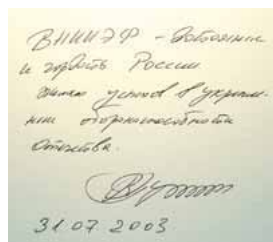 ВНИИЭФ – достояние
и гордость России
желаю успехов в укрепле-
нии обороноспособности
Отечества.
31 07 2003